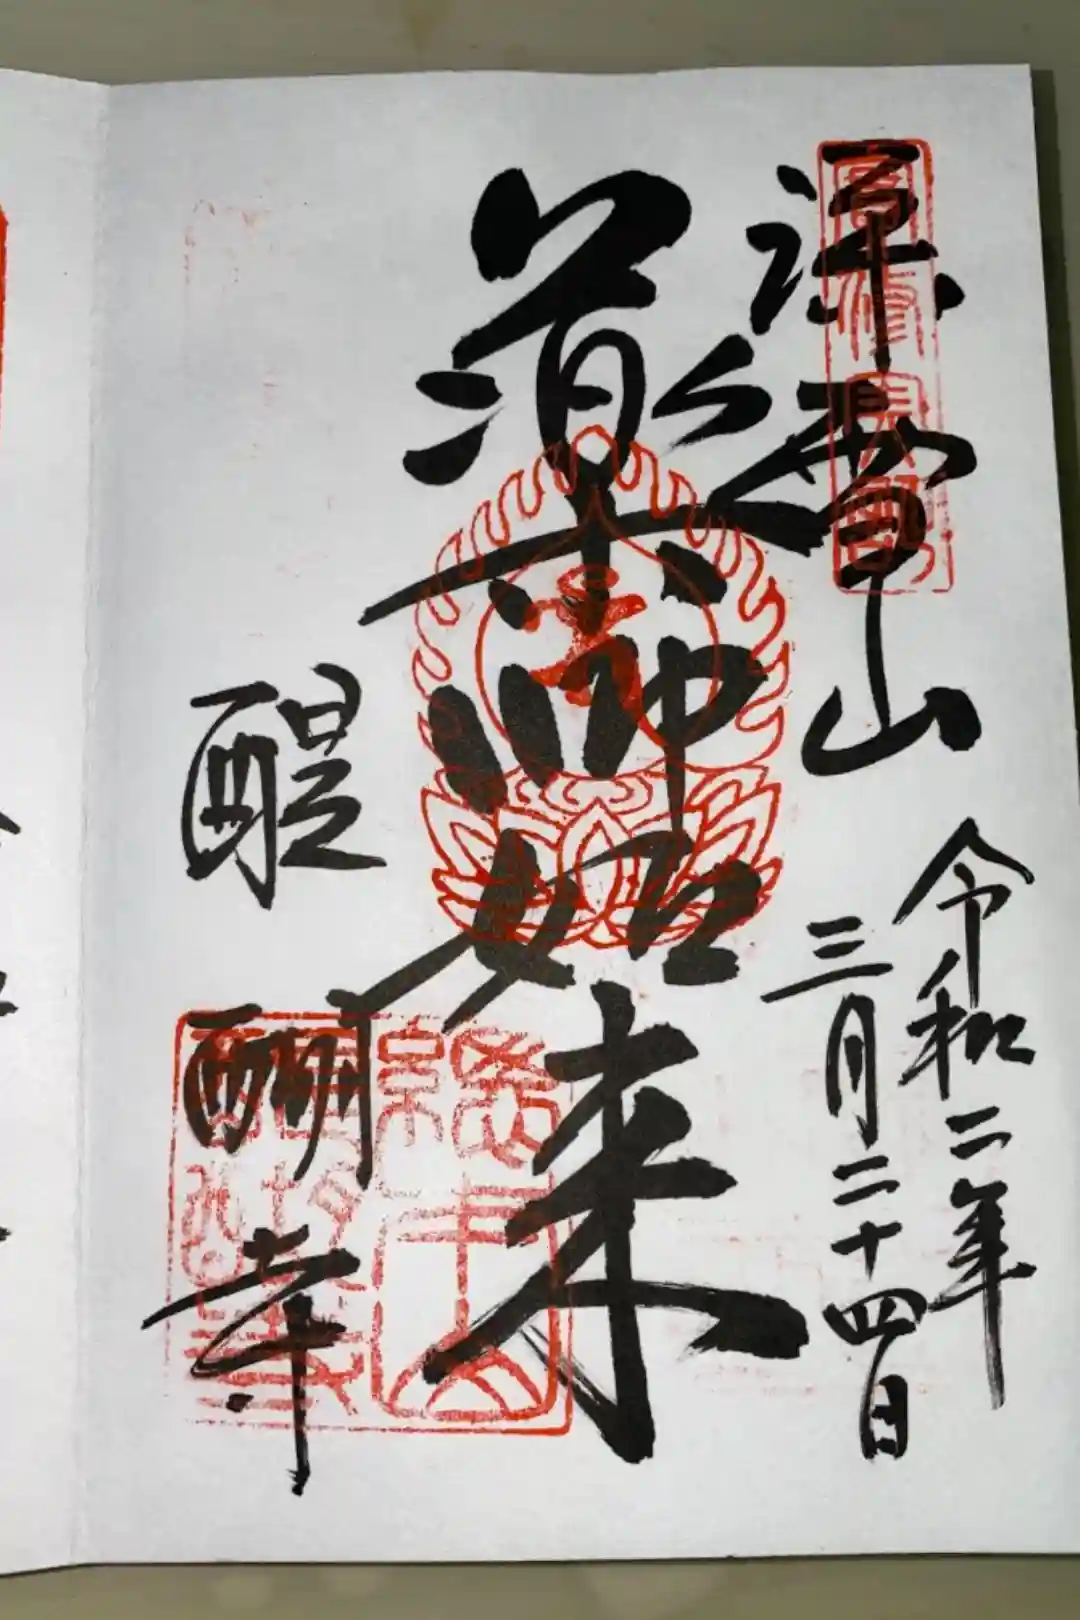 深雪山
令和二年
三月二十四日
薬師如来
醍醐寺
總本山
醍醐寺